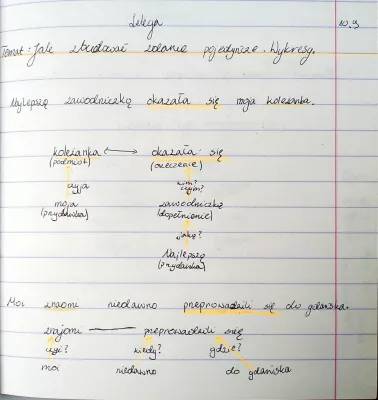 Lekcja 10.9
Temat: Jak zbudować zdanie pojedyncze. Wykresy.
Najlepszą zawodniczką okazała się moja koleżanka.
koleżanka okazała się
(podmiot) (orzeczenie)
czyja kim? czym?
moja zawodniczką
(przydawka) (dopełnienie)
jaką?
Najlepszą
(przydawka)
Moi znajomi niedawno przeprowadzili się do gdańska.
znajomi przeprowadzili się
czyi? kiedy? gdzie?
moi niedawno do gdańska